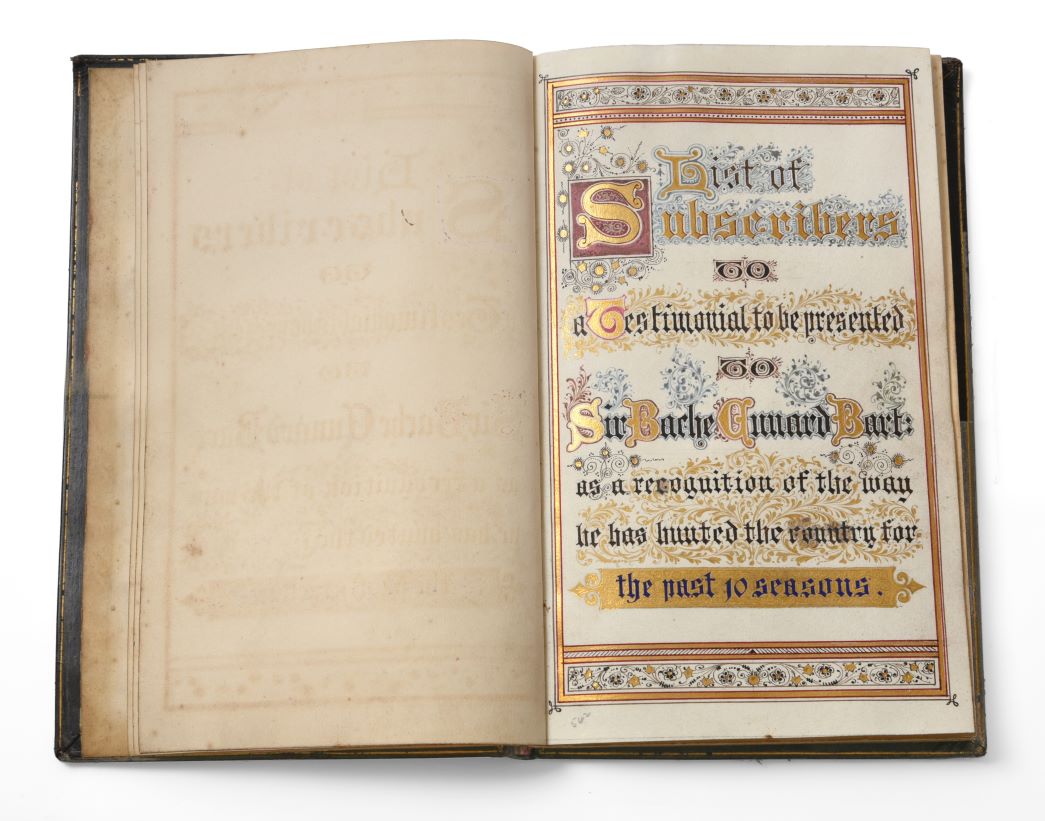 List of
Subscribers
TO
a Testimonial to be presented
TO
Sir Bache Cunard Bart:
as a recognition of the way
he has hunted the country for
the past 10 seasons.